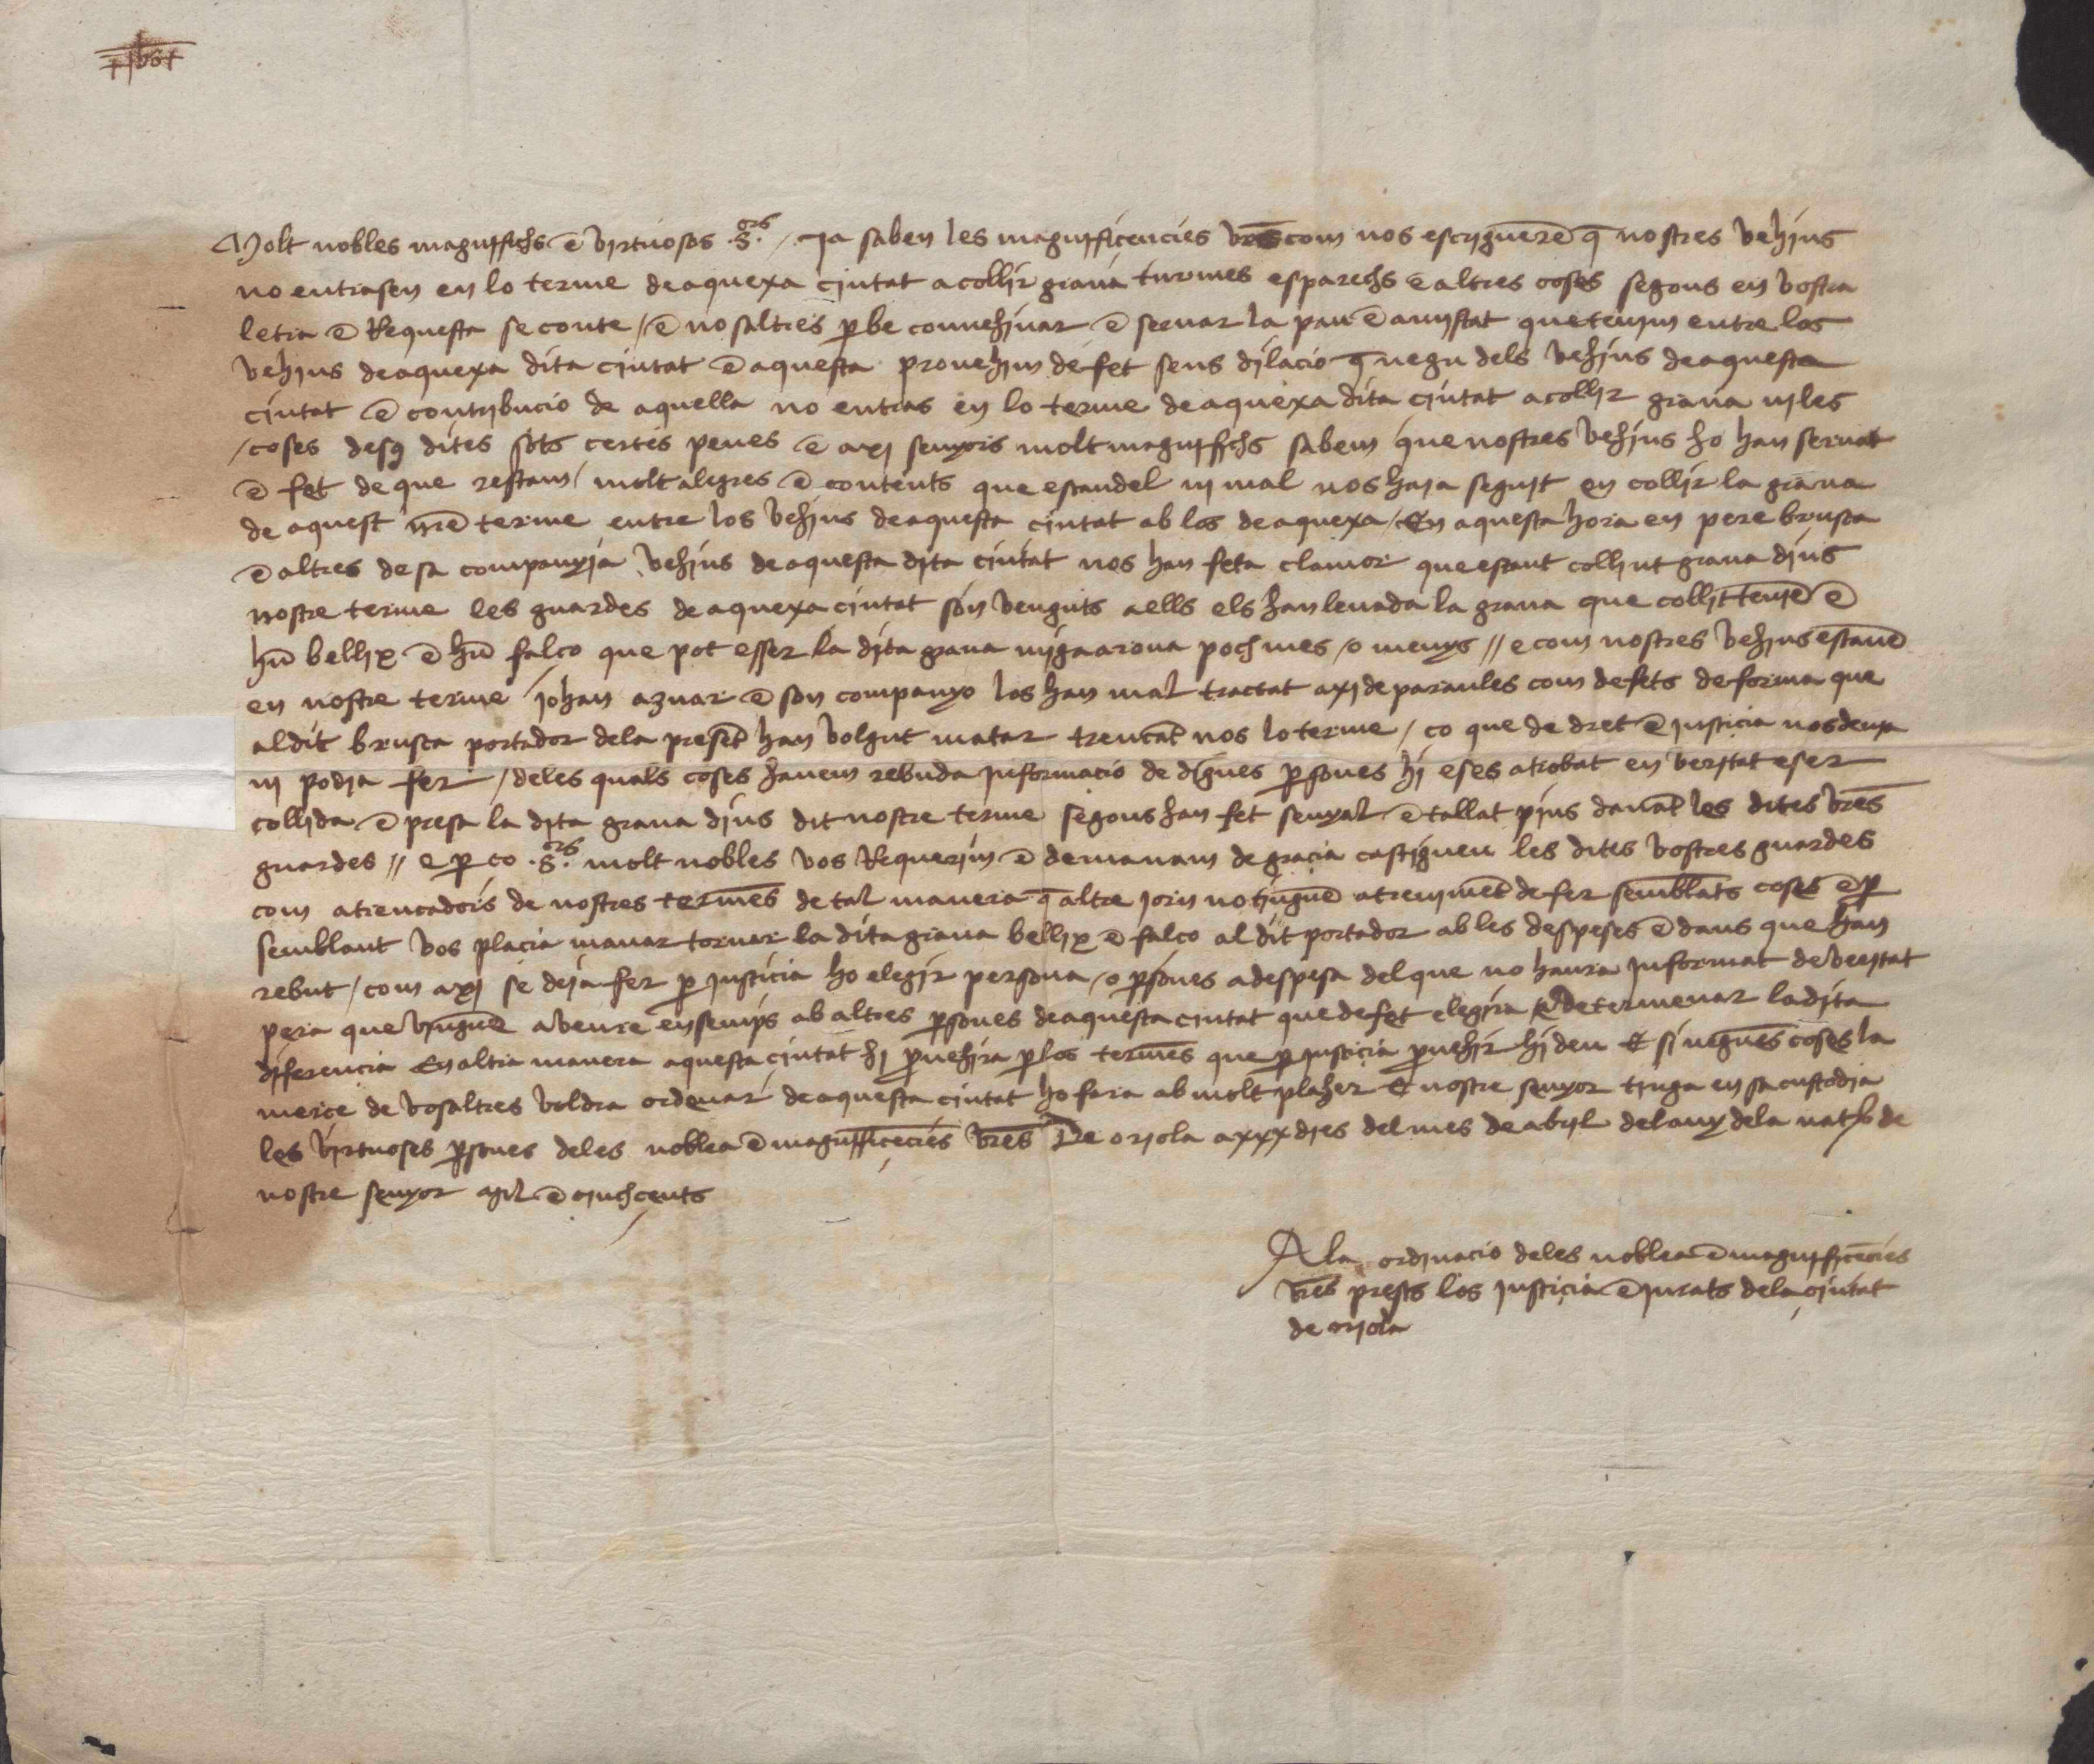 Molt nobles magnifichs e virtuosos .s.ors / Ja saben les magnificencies vres com nos escrigueren q nostres vehins
no entrasen en lo terme de aquexa ciutat a collir grana turmes esparechs e altres coses segons en vostra
letra e Requesta se conte / e nosaltres p be convehinar e servar la pau e amistat que tenim entre los
vehins de aquexa dita ciutat e aquesta provehim de fet sens dilacio q negu dels vehins de aquesta
ciutat e contribucio de aquella no entras en lo terme de aquexa dita ciutat a collir grana ni les
/ coses desq dites sots certes penes e axi senyors molt magnifichs sabem que nostres vehins ho han servat
e fet de que restam / molt alegres e contents que escandel ni mal nos haia seguit en collir la grana
de aquest nre terme entre los vehins de aquesta ciutat ab los de aquexa / En aquesta hora en pere brusca
e altres de sa companyia vehins de aquesta dita ciutat nos han feta clamor que estant collint grana dins
nostre terme les guardes de aquexa ciutat son venguts a ells els han levada la grana que collit tenie e
hu bellix e hu falco que pot esser la dita grana miga arova poch mes / o menys // e com nostres vehins estave
en nostre terme johan aznar e son companyo los han mal tractat axi de paraules com de fets de forma que
al dit brusca portador dela present han volgut matar trencat nos lo terme / co que de dret e justicia nos devya
ni podia fer / deles quals coses havem rebuda informacio de dignes psones hi eses atrobat en veritat eser
collida e presa la dita grana dins dit nostre terme segons han fet senyal e tallat pins davat les dites vres
guardes // e p co .s.ors molt nobles vos Requerim e demanam de gracia castiguen les dites vostres guardes
com a trencadors de nostres termes de tal manera q altre jorn no tingue atrevimet de fer semblats coses e p
semblant vos placia manar tornar la dita grana bellix e falco al dit portador ab les despeses e dans que han
rebut / com axi se deia fer p justicia ho elegir persona / o psones a despesa del que no haura informat de veritat
pera que vingue a veure ensemps ab altres psones de aquesta ciutat que de fet elegira e determenar la dita
diferencia En altra manera aquesta ciutat hi pvehira p los termes que p justicia pvehir hi deu E si negunes coses la
merce de vosaltres voldra ordenar de aquesta ciutat ho fara ab molt plaher E nostre senyor tinga en sa custodia
les virtuoses psones deles noblea e magnificecies vres De oriola a xxx dies del mes de abril del any dela nat de
nostre senyor mil e cinchcents
A la ordinacio deles noblea e magnificecies
vres prests los justicia e jurats dela ciutat
de oriola